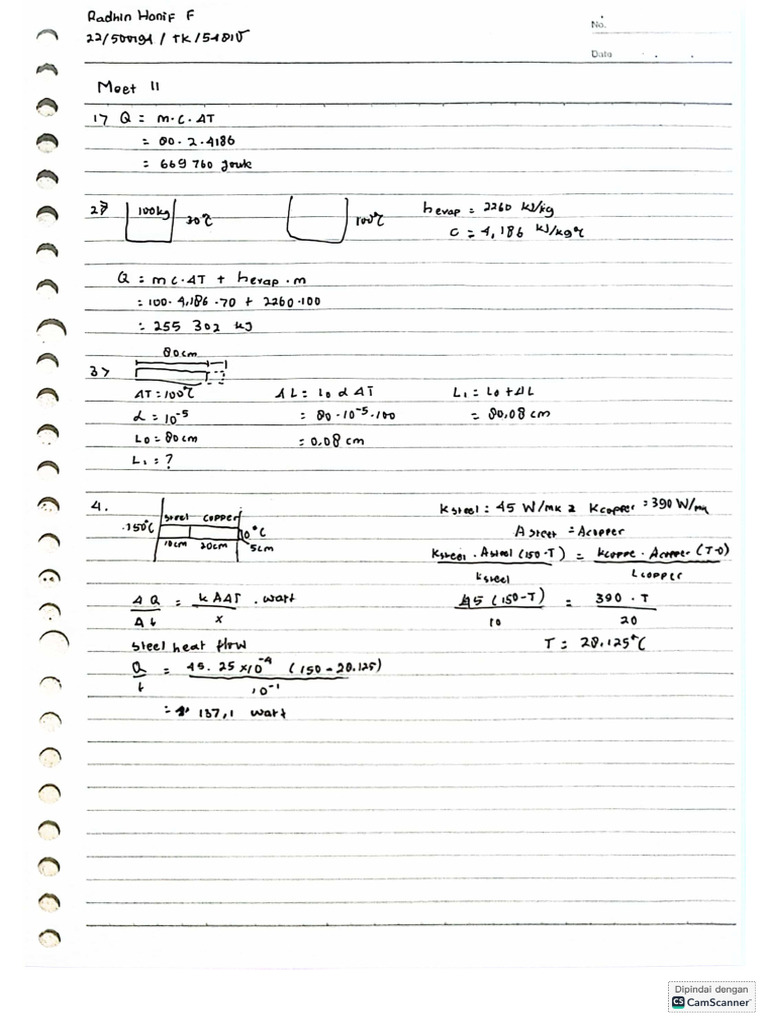 Radhin Hanif F
22/500191 / TK/54815
No.
Date
Meet 11
1> Q = m.c.ΔT
= 80.2.4186
= 669 760 joule
2> 100kg 30°C 100°C hevap = 2260 kJ/kg
C = 4,186 kJ/kg°C
Q = mc.ΔT + hevap.m
= 100.4,186.70 + 2260.100
= 255 302 kJ
80cm
3>
ΔT = 100°C ΔL = Lo α ΔT L₁ = Lo + ΔL
α = 10⁻⁵ = 80.10⁻⁵.100 = 80,08 cm
Lo = 80cm = 0,08 cm
L₁ = ?
4. K steel = 45 W/mK Kcopper = 390 W/mK
steel copper
150°C 0°C A steel = Acopper
10cm 20cm 5cm
Ksteel . Asteel (150-T) / Ksteel = Kcopper . Acopper (T-0) / Lcopper
ΔQ/Δt = kAΔT/x . watt 45 (150-T)/10 = 390 . T/20
steel heat flow T = 28,125°C
Q/t = 45.25×10⁻⁴ (150-28.125) / 10⁻¹
= 137,1 watt
Dipindai dengan
CS CamScanner